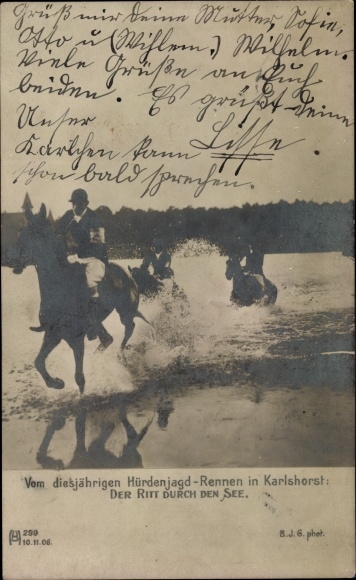 Grüß mir deine Mutter, Sofie,
Otto u (Wihlem,) Wilhelm.
Viele Grüße an Euch
beiden. Es grüßt deine
Unser Lisse.
Karlchen kann
schon bald sprechen.
Vom diesjährigen Hürdenjagd-Rennen in Karlshorst:
DER RITT DURCH DEN SEE.
299
10.11.06.
B.J.G. phot.